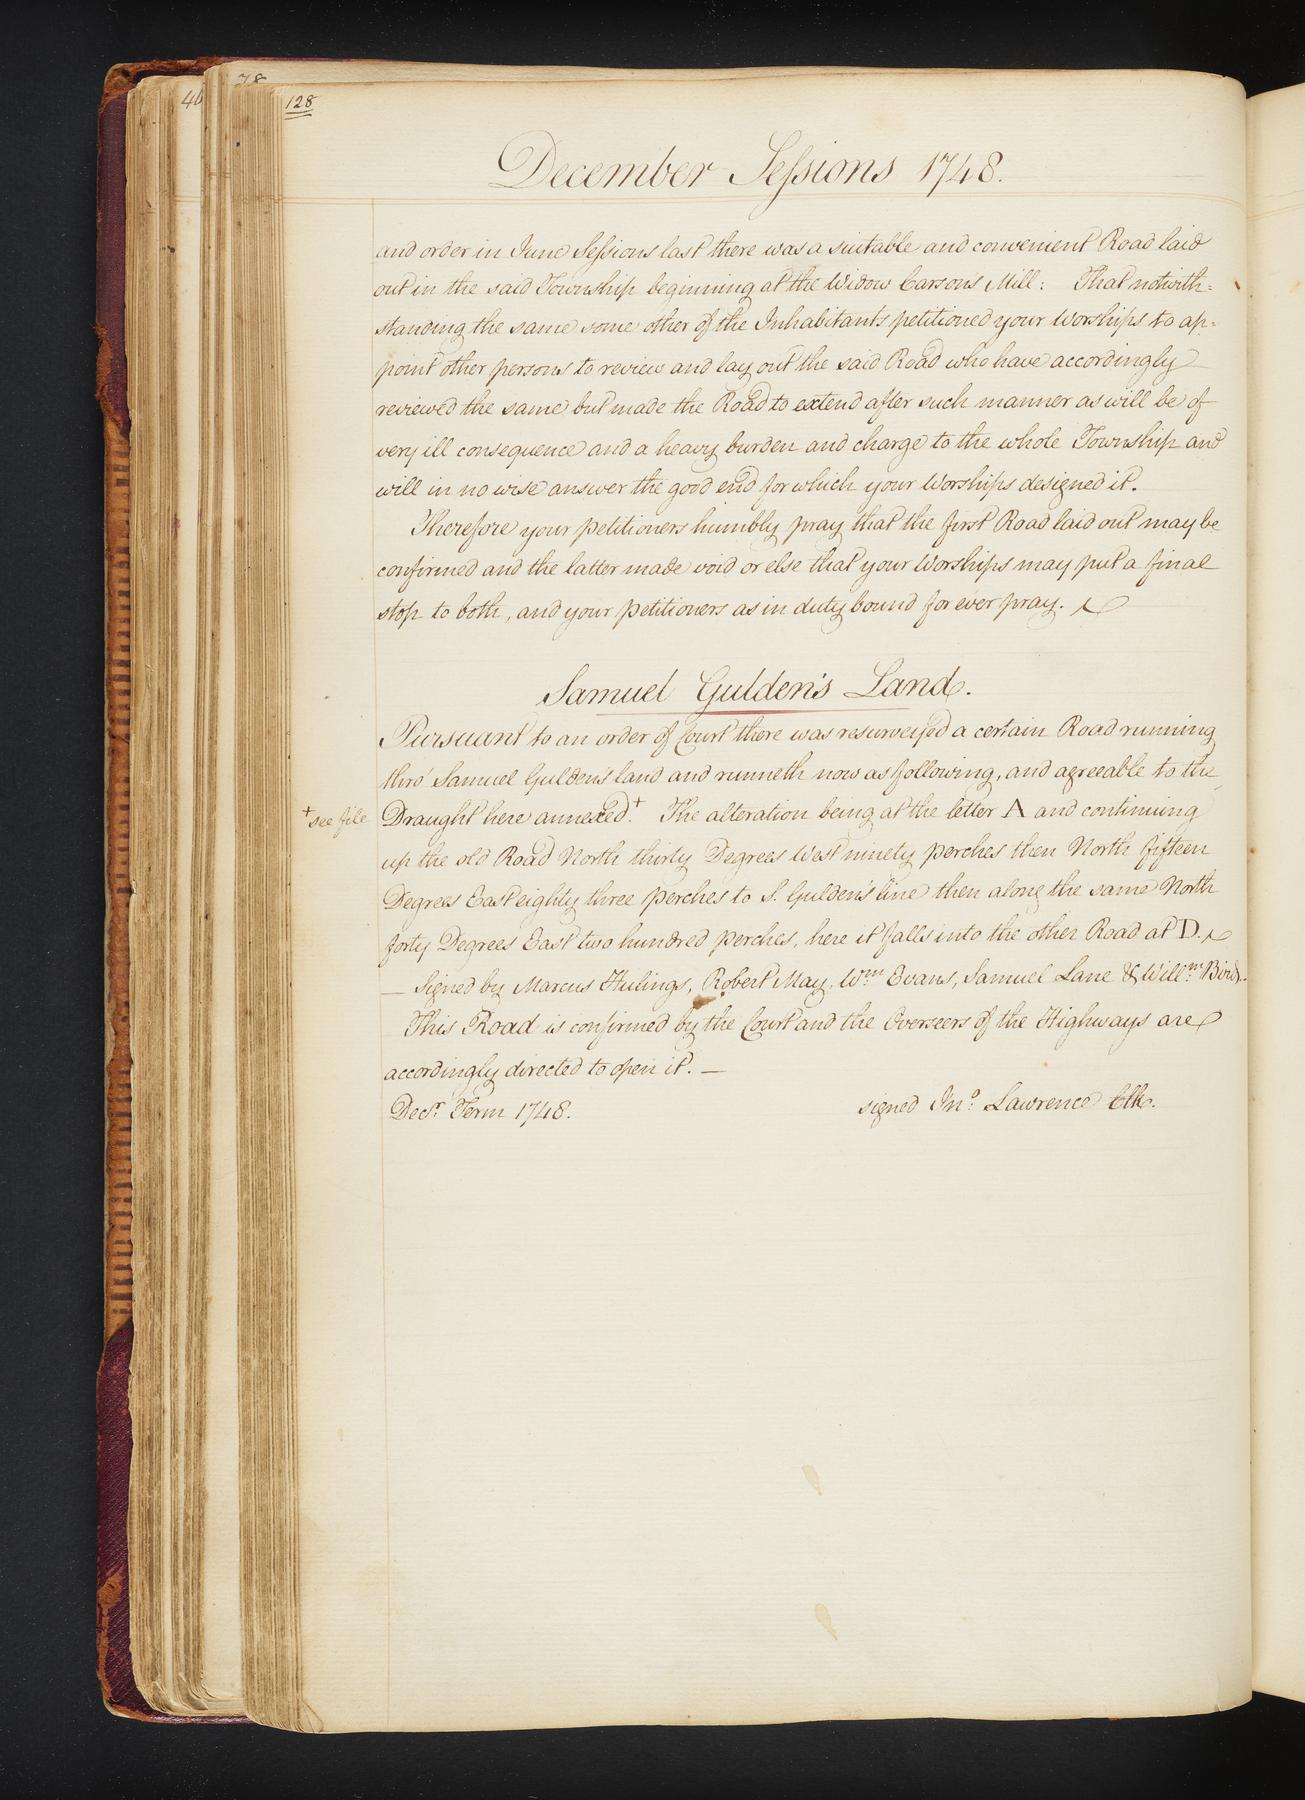 46
78
128
December Sessions 1748.
and order in June Sessions last there was a suitable and convenient Road laid
out in the said Township beginning at the Widow Carson's Mill: That notwith=
standing the same some other of the Inhabitants petitioned your Worships to ap=
point other persons to review and lay out the said Road who have accordingly
reviewed the same but made the Road to extend after such manner as will be of
very ill consequence and a heavy burden and charge to the whole Township and
will in no wise answer the good end for which your Worships designed it.
Therefore your petitioners humbly pray that the first Road laid out may be
confirmed and the latter made void or else that your Worships may put a final
stop to both, and your petitioners as in duty bound for ever pray.
Samuel Gulden's Land.
Pursuant to an order of Court there was resurveyed a certain Road running
thro' Samuel Gulden's land and runneth now as following, and agreeable to the
+see file Draught here annexed.+ The alteration being at the letter A and continuing
up the old Road North thirty Degrees West ninety perches then North fifteen
Degrees East eighty three perches to S. Gulden's line then along the same North
forty Degrees East two hundred perches, here it falls into the other Road at D.
— Signed by Marcus Hulings, Robert May, Wm. Evans, Samuel Lane & Willm. Bird.
This Road is confirmed by the Court and the Overseers of the Highways are
accordingly directed to open it. —
Decr. Term 1748. signed Jno. Lawrence Clk.